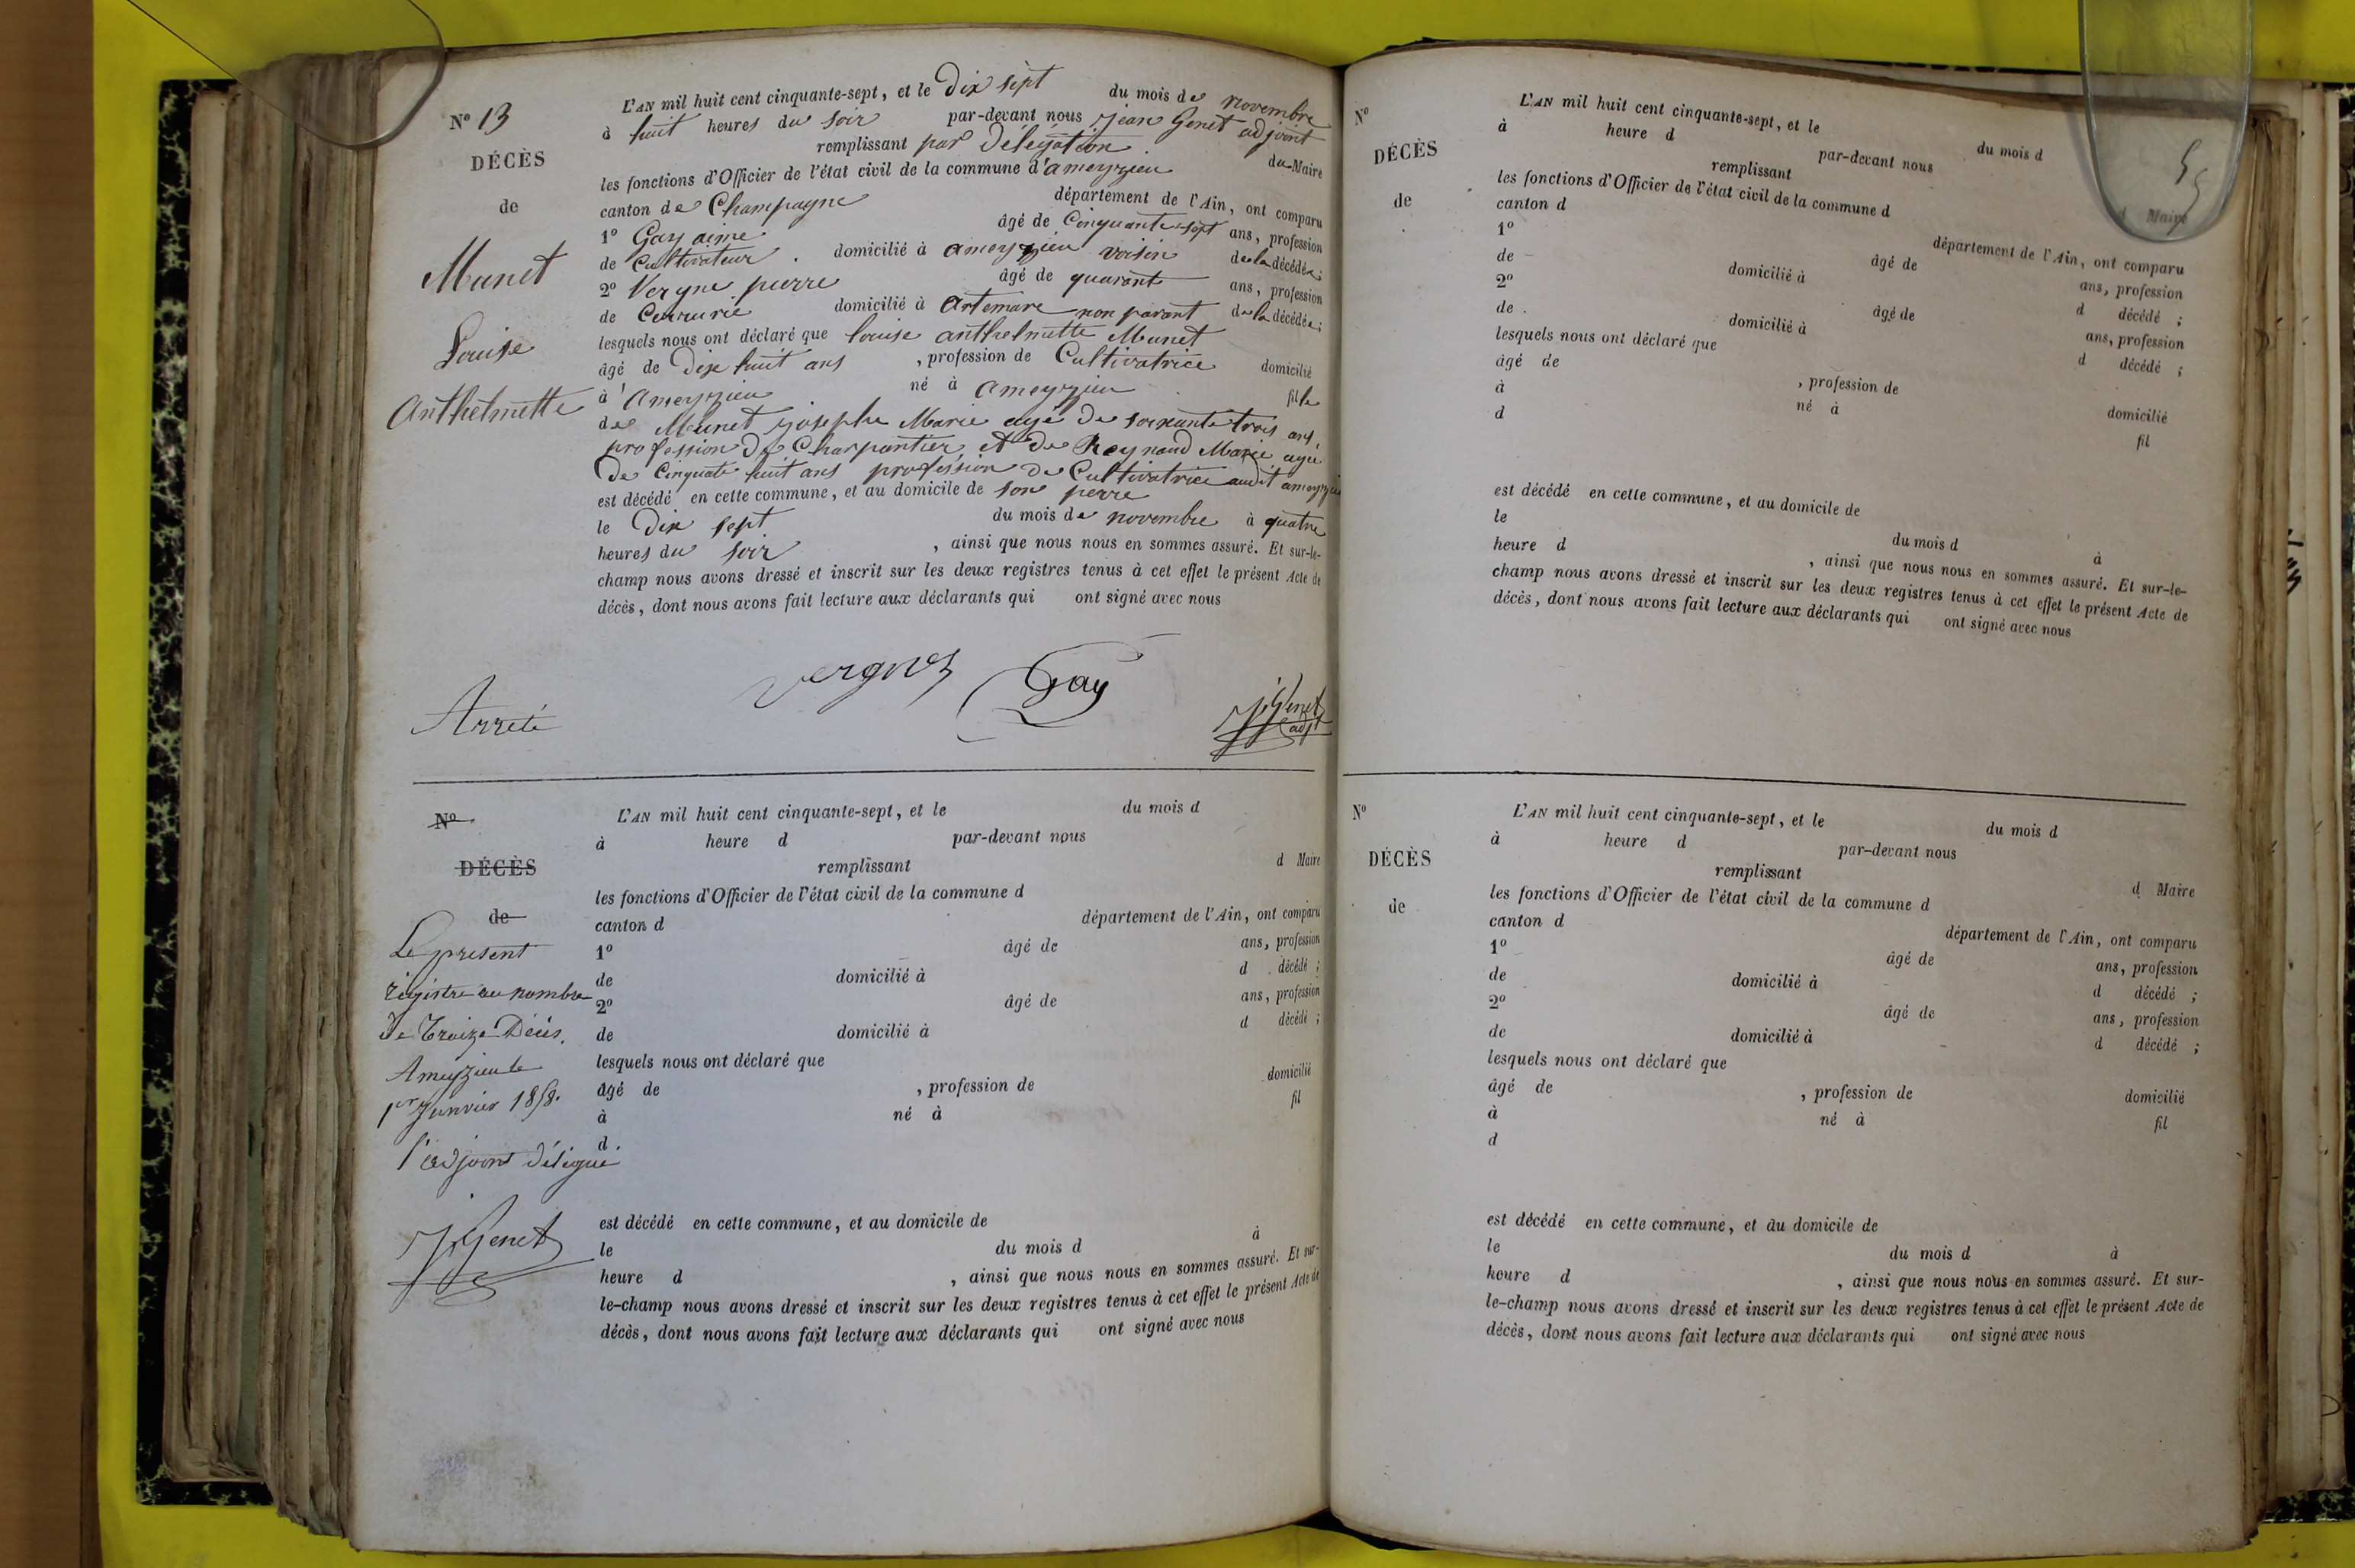 N° 13
DÉCÈS
de
Munet
Louise
Anthelmette
L'AN mil huit cent cinquante-sept, et le Dix sept du mois de novembre
à huit heures du soir par-devant nous jean Genet adjoint
remplissant par Délégation du Maire
les fonctions d'Officier de l'état civil de la commune d'ameyzieu
canton de Champagne département de l'Ain, ont comparu
1° Gay aime âgé de Cinquante sept ans, profession
de Cultivateur domicilié à ameyzieu voisin de la décédée;
2° Vergne pierre âgé de quarante ans, profession
de Cerrurié domicilié à Artemare non parant de la décédée;
lesquels nous ont déclaré que louise anthelmette Munet
âgé de Dix huit ans , profession de Cultivatrice domicilié
à Ameyzieu né à ameyzieu fille
de Munet josephe Marie agé de soixante trois ans,
profession De Charpantier et De Reynaud Marie agee
De Cinquate huit ans profession De Cultivatrice audit ameyzieu
est décédé en cette commune, et au domicile de son perre
le Dix sept du mois de novembre à quatre
heures du soir , ainsi que nous nous en sommes assuré. Et sur-le-
champ nous avons dressé et inscrit sur les deux registres tenus à cet effet le présent Acte de
décès, dont nous avons fait lecture aux déclarants qui ont signé avec nous
Vergnes Gay J. Genet
adjt
Arreté
N°
DÉCÈS
de
Le present
régistre au nombre
De Treize Décès.
Ameyzieu le
1er Janvier 1858.
l'adjoint délégué
J. Genet
L'AN mil huit cent cinquante-sept, et le du mois d
à heure d par-devant nous
remplissant d Maire
les fonctions d'Officier de l'état civil de la commune d
canton d département de l'Ain, ont comparu
1° âgé de ans, profession
de domicilié à d décédé ;
2° âgé de ans, profession
de domicilié à d décédé ;
lesquels nous ont déclaré que
âgé de , profession de domicilié
à né à fil
d
est décédé en cette commune, et au domicile de
le du mois d à
heure d , ainsi que nous nous en sommes assuré. Et sur-
le-champ nous avons dressé et inscrit sur les deux registres tenus à cet effet le présent Acte de
décès, dont nous avons fait lecture aux déclarants qui ont signé avec nous
N°
DÉCÈS
de
L'AN mil huit cent cinquante-sept, et le du mois d
à heure d par-devant nous
remplissant d Maire
les fonctions d'Officier de l'état civil de la commune d
canton d département de l'Ain, ont comparu
1° âgé de ans, profession
de domicilié à d décédé ;
2° âgé de ans, profession
de domicilié à d décédé ;
lesquels nous ont déclaré que
âgé de , profession de domicilié
à né à fil
d
est décédé en cette commune, et au domicile de
le du mois d à
heure d , ainsi que nous nous en sommes assuré. Et sur-le-
champ nous avons dressé et inscrit sur les deux registres tenus à cet effet le présent Acte de
décès, dont nous avons fait lecture aux déclarants qui ont signé avec nous
N°
DÉCÈS
de
L'AN mil huit cent cinquante-sept, et le du mois d
à heure d par-devant nous
remplissant d Maire
les fonctions d'Officier de l'état civil de la commune d
canton d département de l'Ain, ont comparu
1° âgé de ans, profession
de domicilié à d décédé ;
2° âgé de ans, profession
de domicilié à d décédé ;
lesquels nous ont déclaré que
âgé de , profession de domicilié
à né à fil
d
est décédé en cette commune, et au domicile de
le du mois d à
heure d , ainsi que nous nous en sommes assuré. Et sur-
le-champ nous avons dressé et inscrit sur les deux registres tenus à cet effet le présent Acte de
décès, dont nous avons fait lecture aux déclarants qui ont signé avec nous